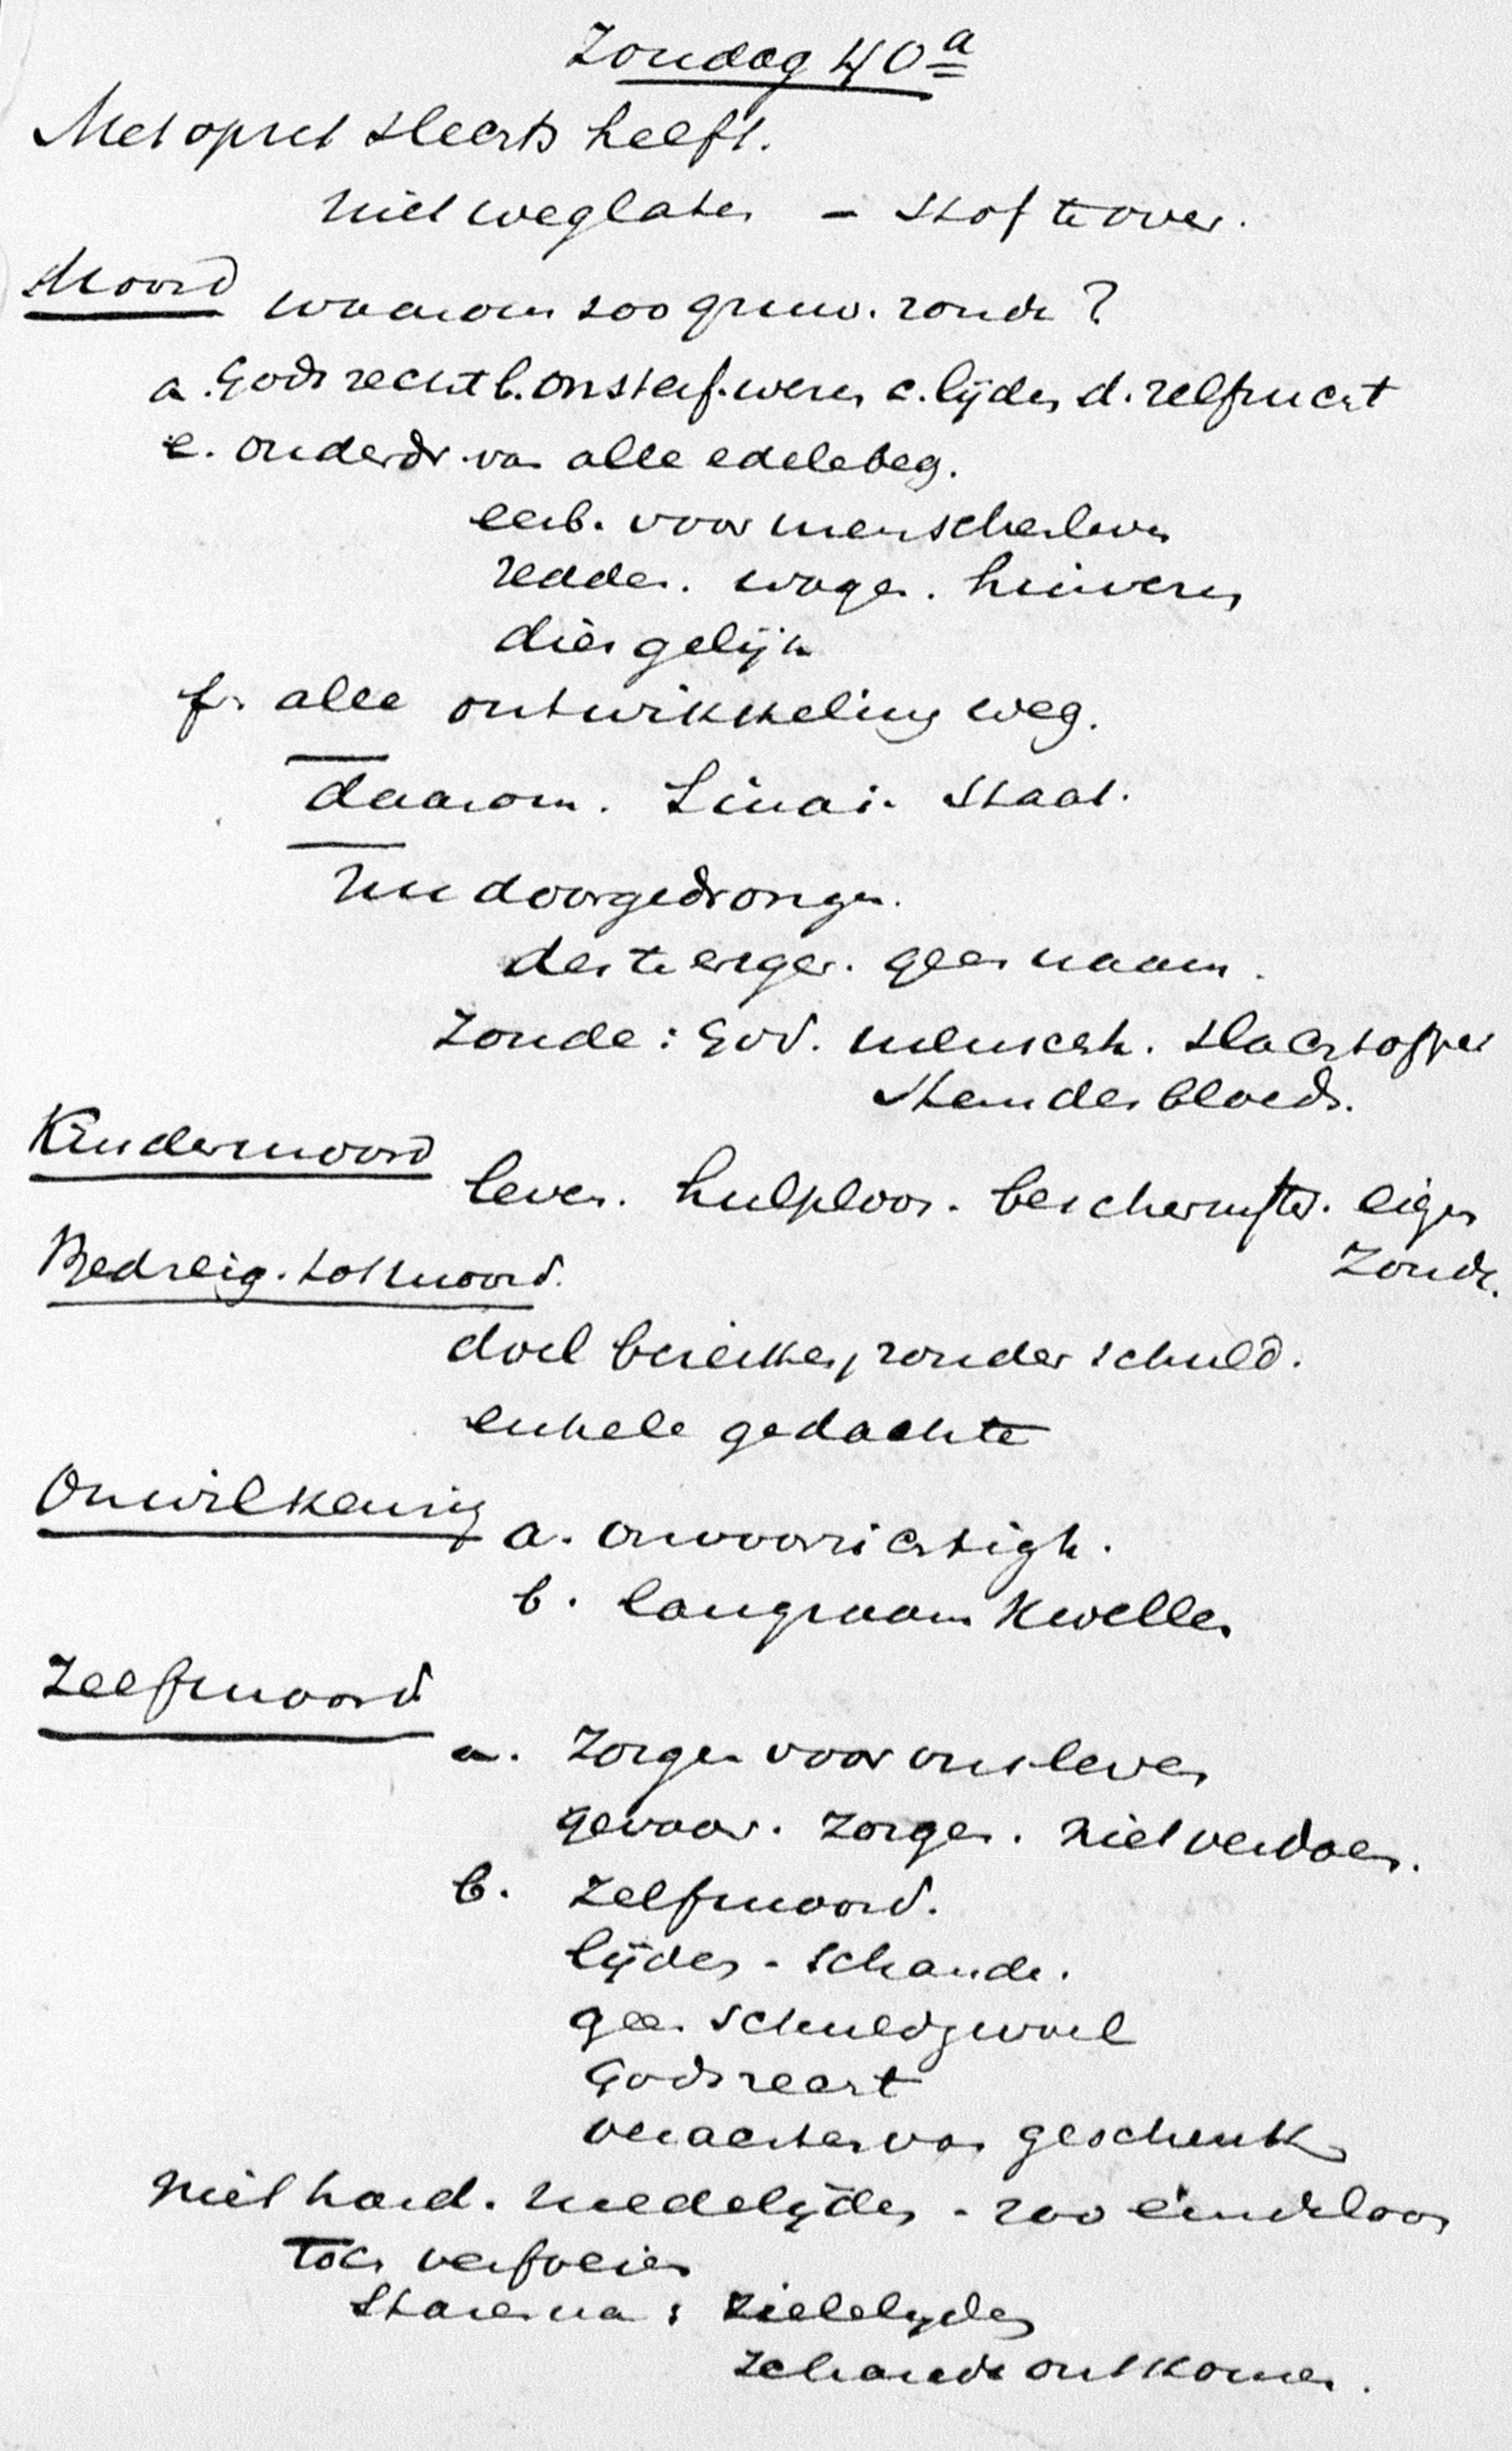 Zondag 40a
Met opzet slechts helft.
Niet weglaten - stof te over.
Moord waarom zoo gruw. zonde?
a. Gods recht b. onsterf. wezen c. lijden d. zelfzucht
e. onderdr. van alle edele beg.
eerb. voor menschenleven
redden. wagen. huiveren
dier gelijk
f. alle ontwikkeling weg.
daarom. Sinai. Staat.
Nu doorgedrongen.
des te erger. geen naam.
Zonde: God. mensch. slachtoffer
Stem des bloeds.
Kindermoord leven. hulploos. beschermster. eigen
zonde.
Bedreig. tot moord.
doel bereiken, zonder schuld.
enkele gedachte
Onwilkeurig a. onvoorzichtigh.
b. langzaam kwellen
Zelfmoord
a. Zorgen voor ons leven
gevaar. zorgen. niet verdoen.
b. Zelfmoord.
lijden - schande.
geen schuldgevoel
Gods recht
verachten van geschenk
Niet hard. medelijden - zoo eindeloos
Toch verfoeien
: zielelijden
schande ontkomen.